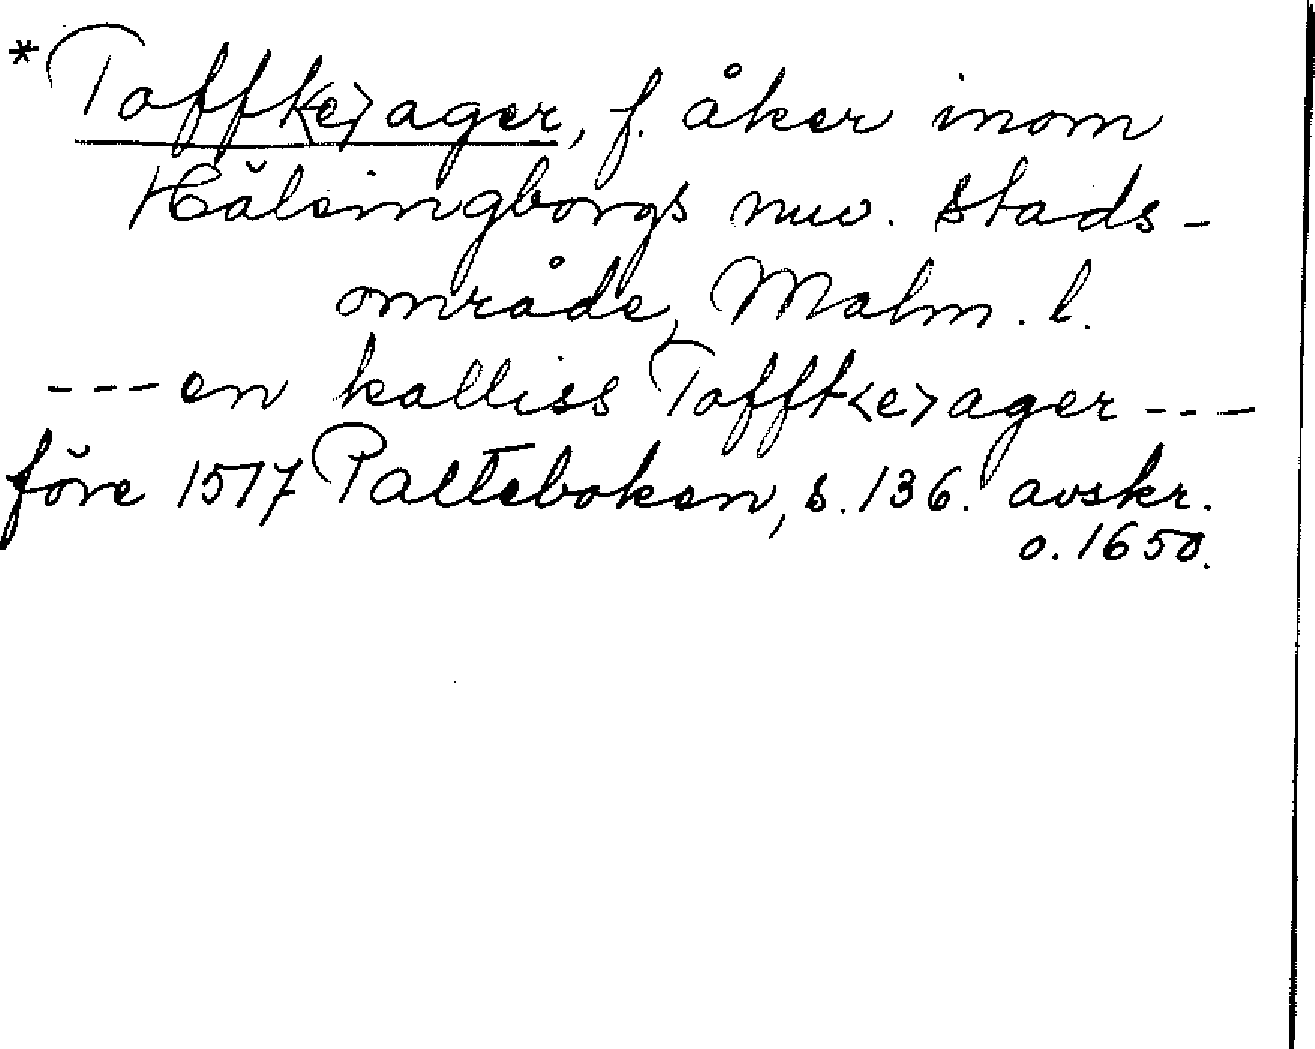 *Tofft<e>ager, f. åker inom
Hälsingborgs nuv. stads-
område, Malm. l.
---en kalliss Tofft<e>ager---
före 1517 Palteboken, s. 136. avskr.
o. 1650.